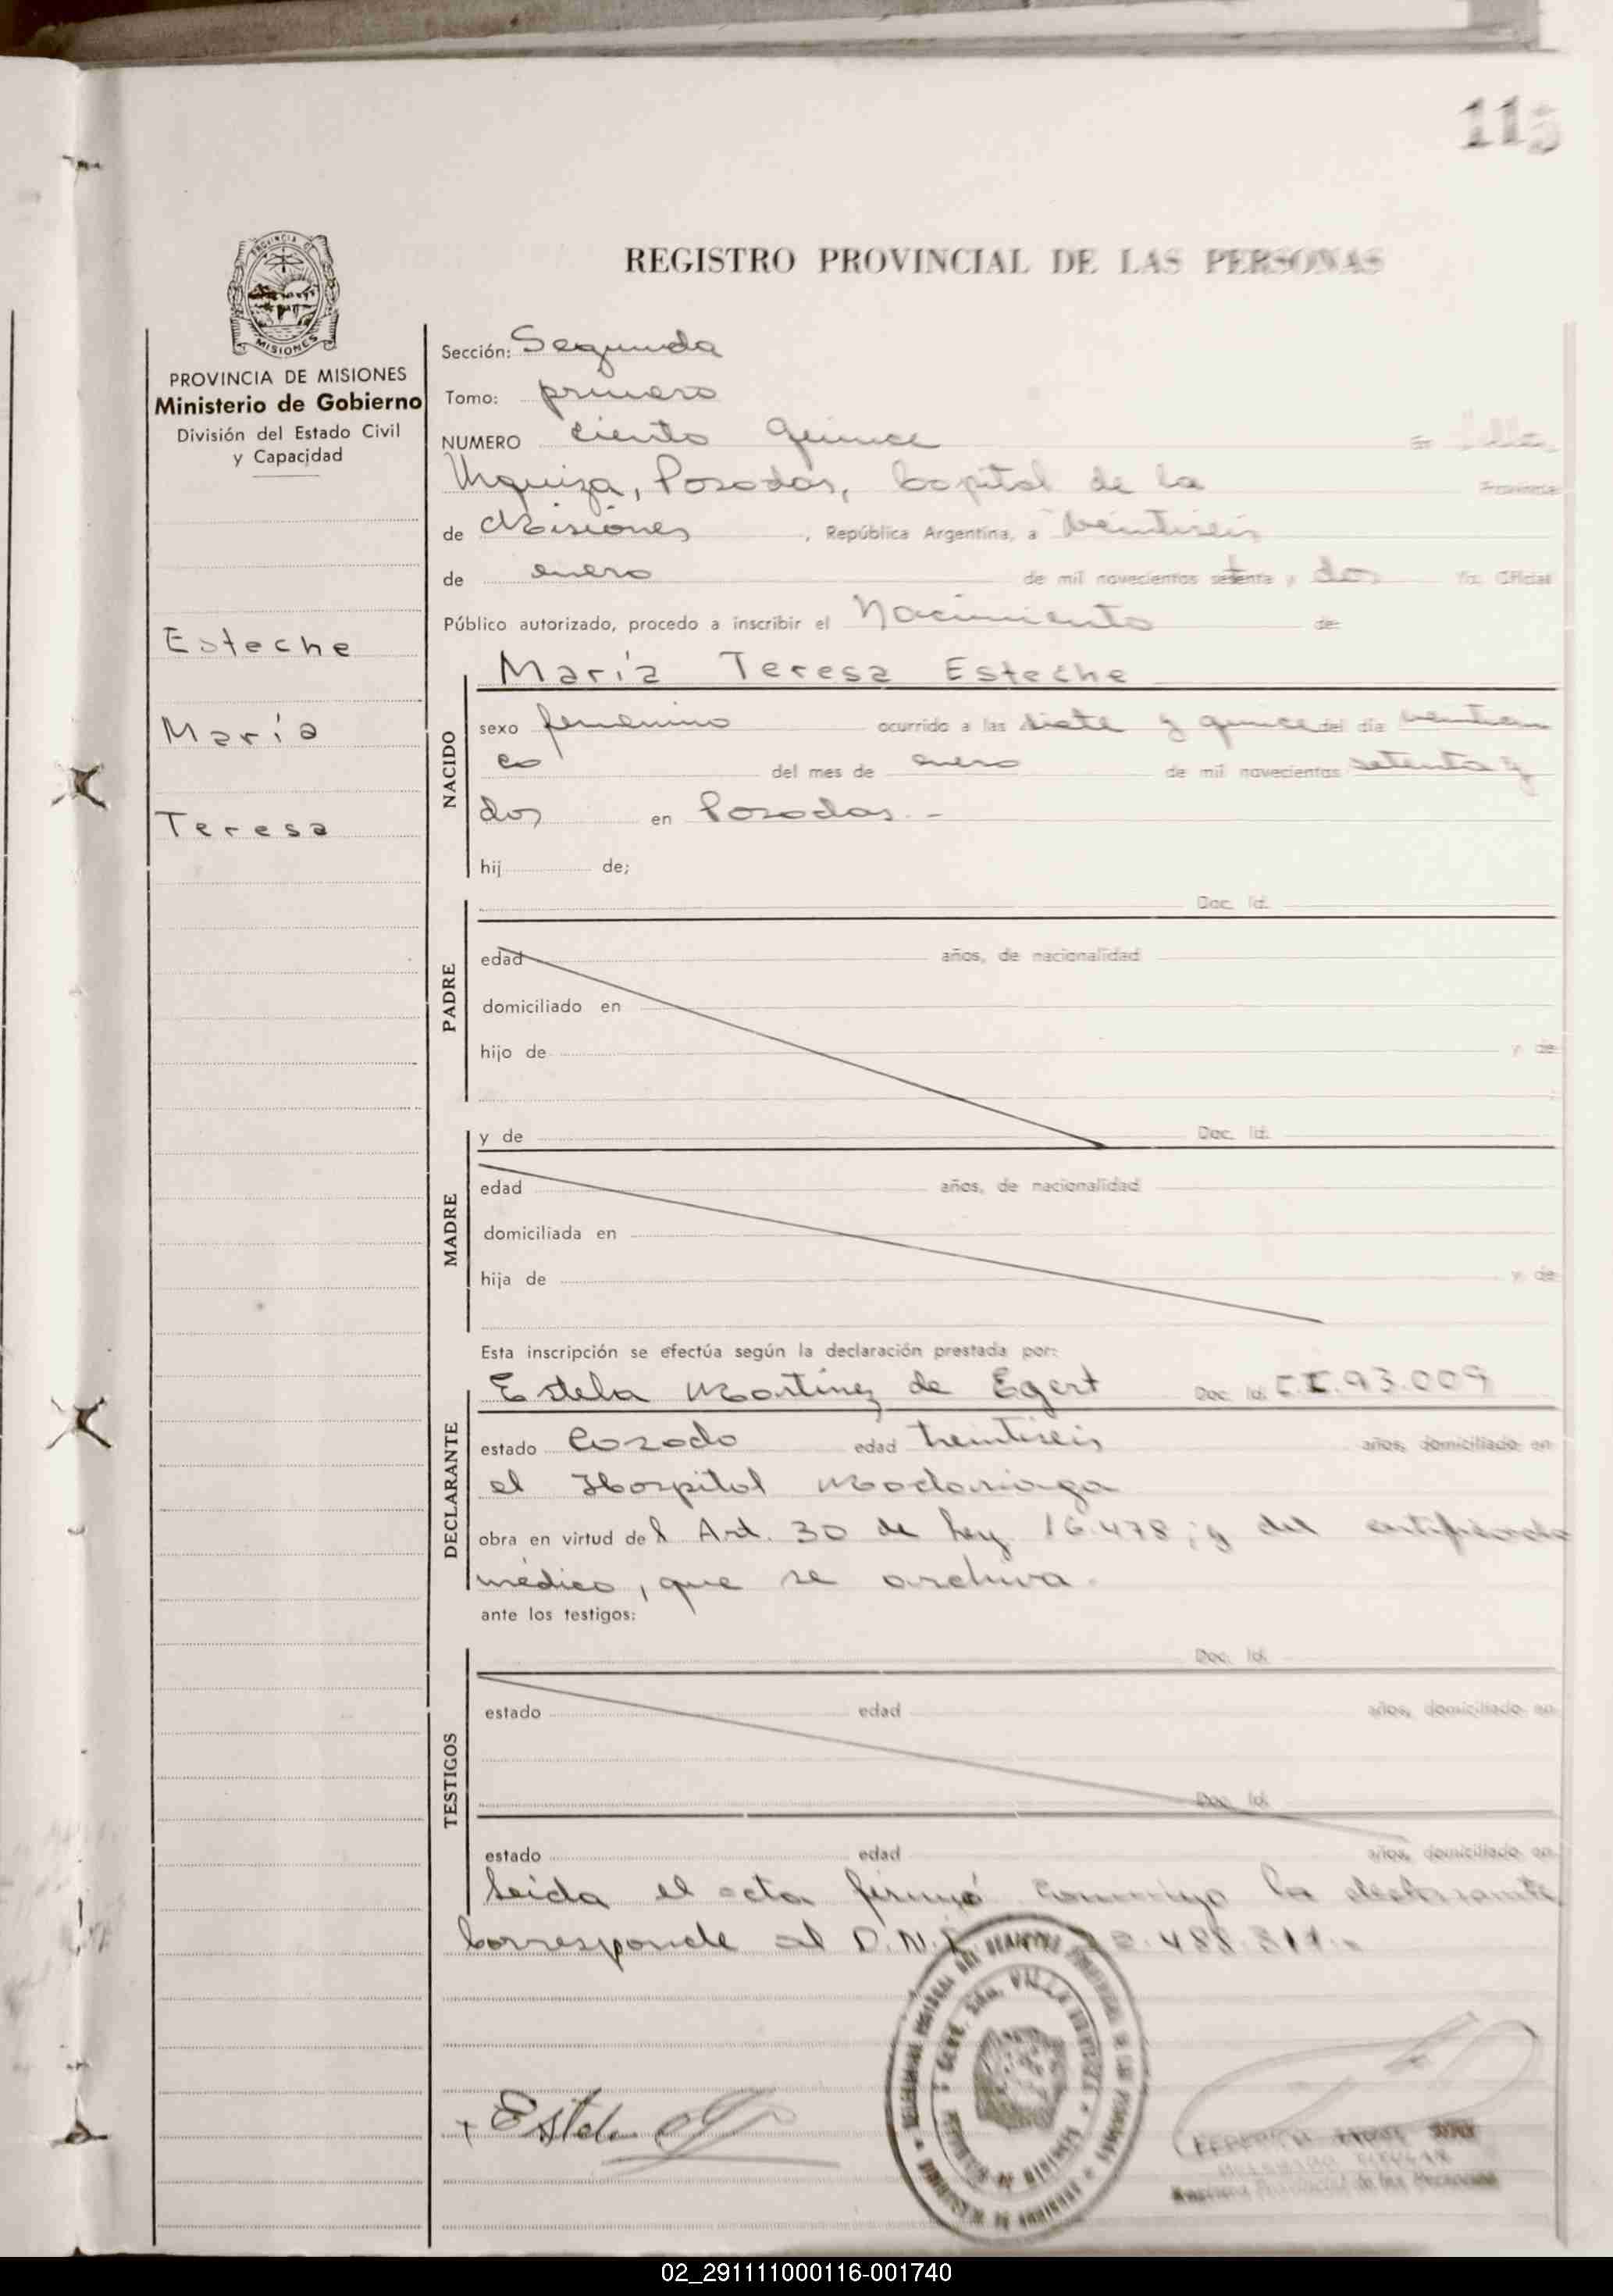 115
PROVINCIA DE MISIONES
MISIONES
PROVINCIA DE MISIONES
Ministerio de Gobierno
División del Estado Civil
y Capacidad
Esteche
María
Teresa
REGISTRO PROVINCIAL DE LAS PERSONAS
Sección: Segunda
Tomo: primero
NUMERO ciento quince En Villa
Urquiza, Posadas, Capital de la Provincia
de Misiones, República Argentina, a veintiseis
de enero de mil novecientos setenta y dos Yo, Oficial
Público autorizado, procedo a inscribir el Nacimiento de:
María Teresa Esteche
NACIDO
sexo femenino ocurrido a las siete y quince del día
del mes de enero de mil novecientos setenta y
dos en Posadas.-
hij de;
PADRE
Doc. Id.
edad años, de nacionalidad
domiciliado en
hijo de y de
MADRE
y de Doc. Id.
edad años, de nacionalidad
domiciliada en
hija de y de
Esta inscripción se efectúa según la declaración prestada por:
DECLARANTE
Estela Martinez de Egert Doc. Id. C.I. 93.009
estado casado edad treintiseis años, domiciliado en
el Hospital Madariaga
obra en virtud del Art. 30 de Ley 16.478; y del certificado
médico, que se archiva.
ante los testigos:
TESTIGOS
Doc. Id.
estado edad años, domiciliado en
Doc. Id.
estado edad años, domiciliado en
Leida el acta firmó conmigo la declarante
Corresponde al D.N.I.
Estela
02_291111000116-001740